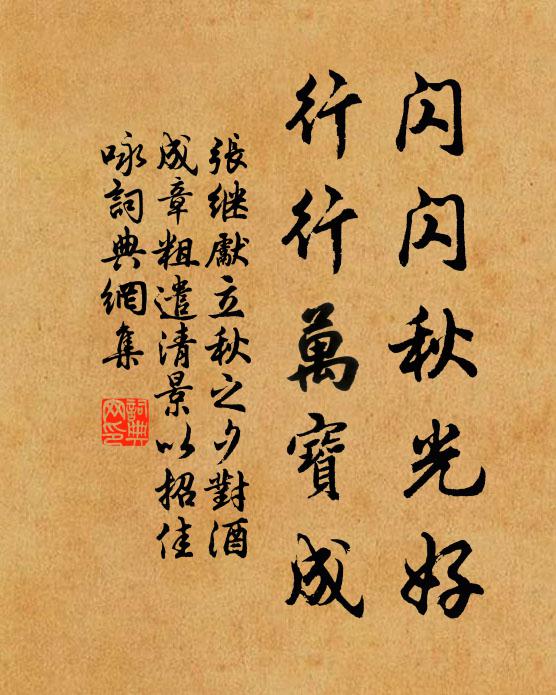 閃閃秋光好
行行萬寶成
張継獻立秋之夕對酒
成章粗遣清景以招佳
咏詞典網集
詞典
网印